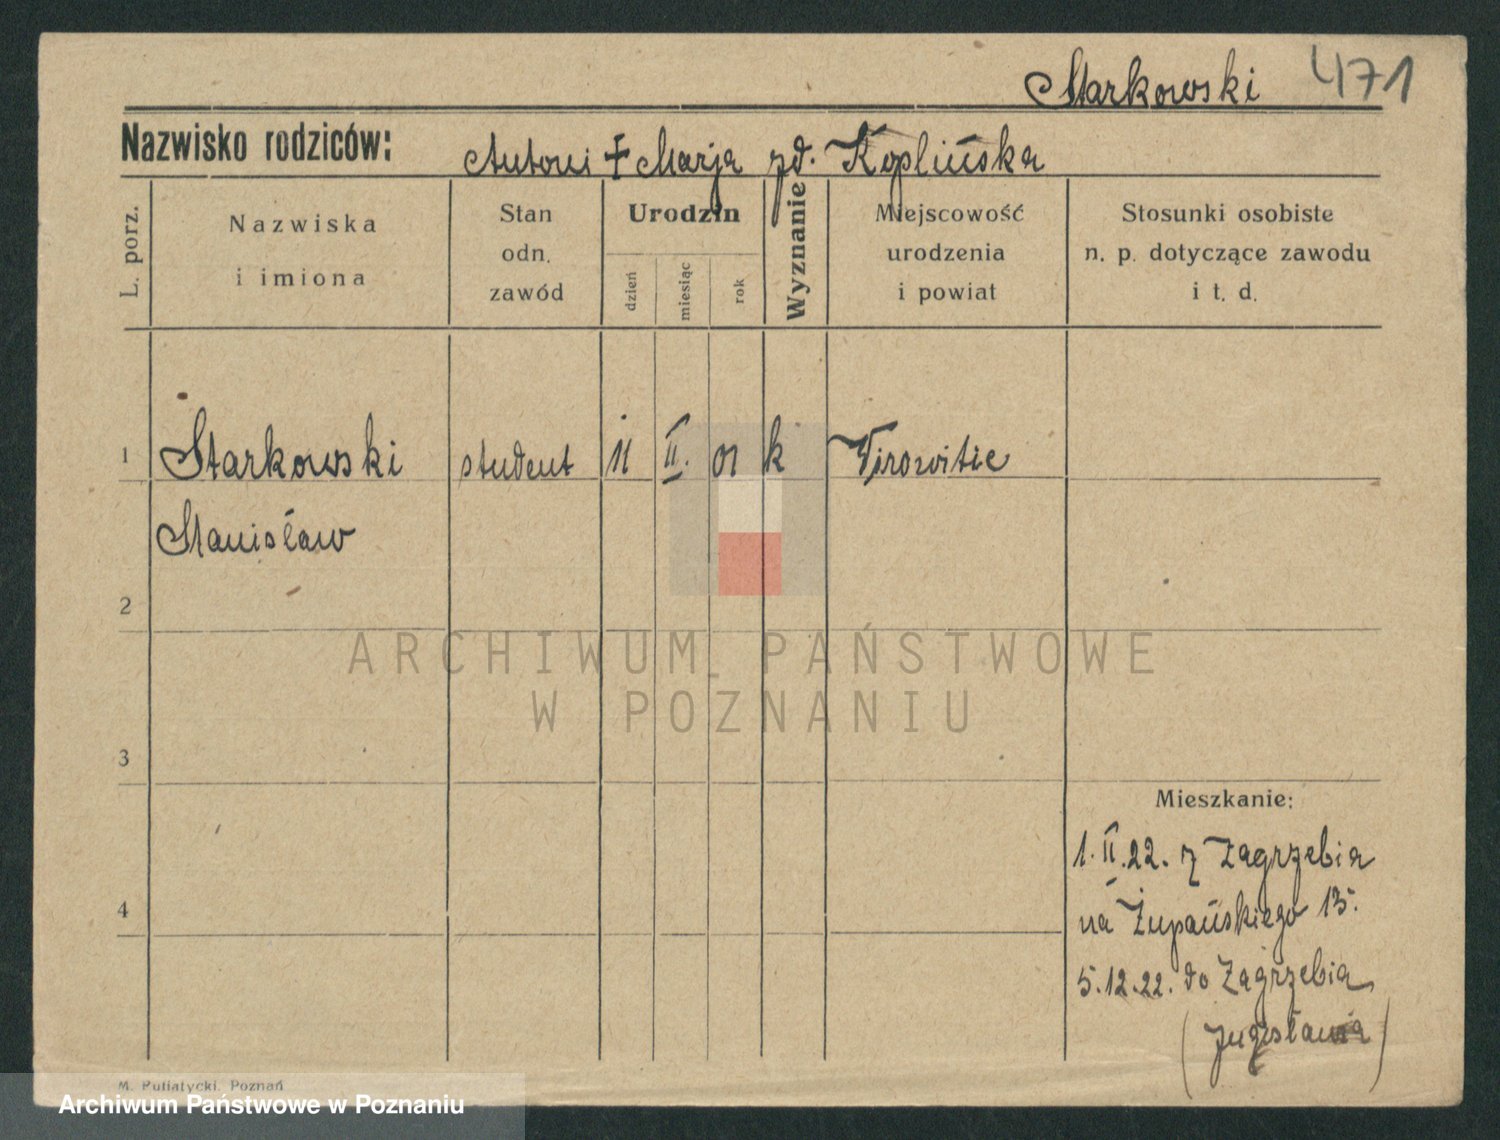 Starkowski 471
Nazwisko rodziców: Antoni + Marja zd. Koplińska
L. porz.
Nazwiska
i imiona
Stan
odn.
zawód
Urodzin
dzień
miesiąc
rok
Wyznanie
Miejscowość
urodzenia
i powiat
Stosunki osobiste
n. p. dotyczące zawodu
i t. d.
1 Starkowski student 11 II. 01 k Virowitic
Stanisław
2
ARCHIWUM PAŃSTWOWE
W POZNANIU
3
Mieszkanie:
1.II.22. z Zagrzebia
na Żupańskiego 15.
4
5.12.22. do Zagrzebia
(Jugosławia)
M. Putiatycki, Poznań
Archiwum Państwowe w Poznaniu